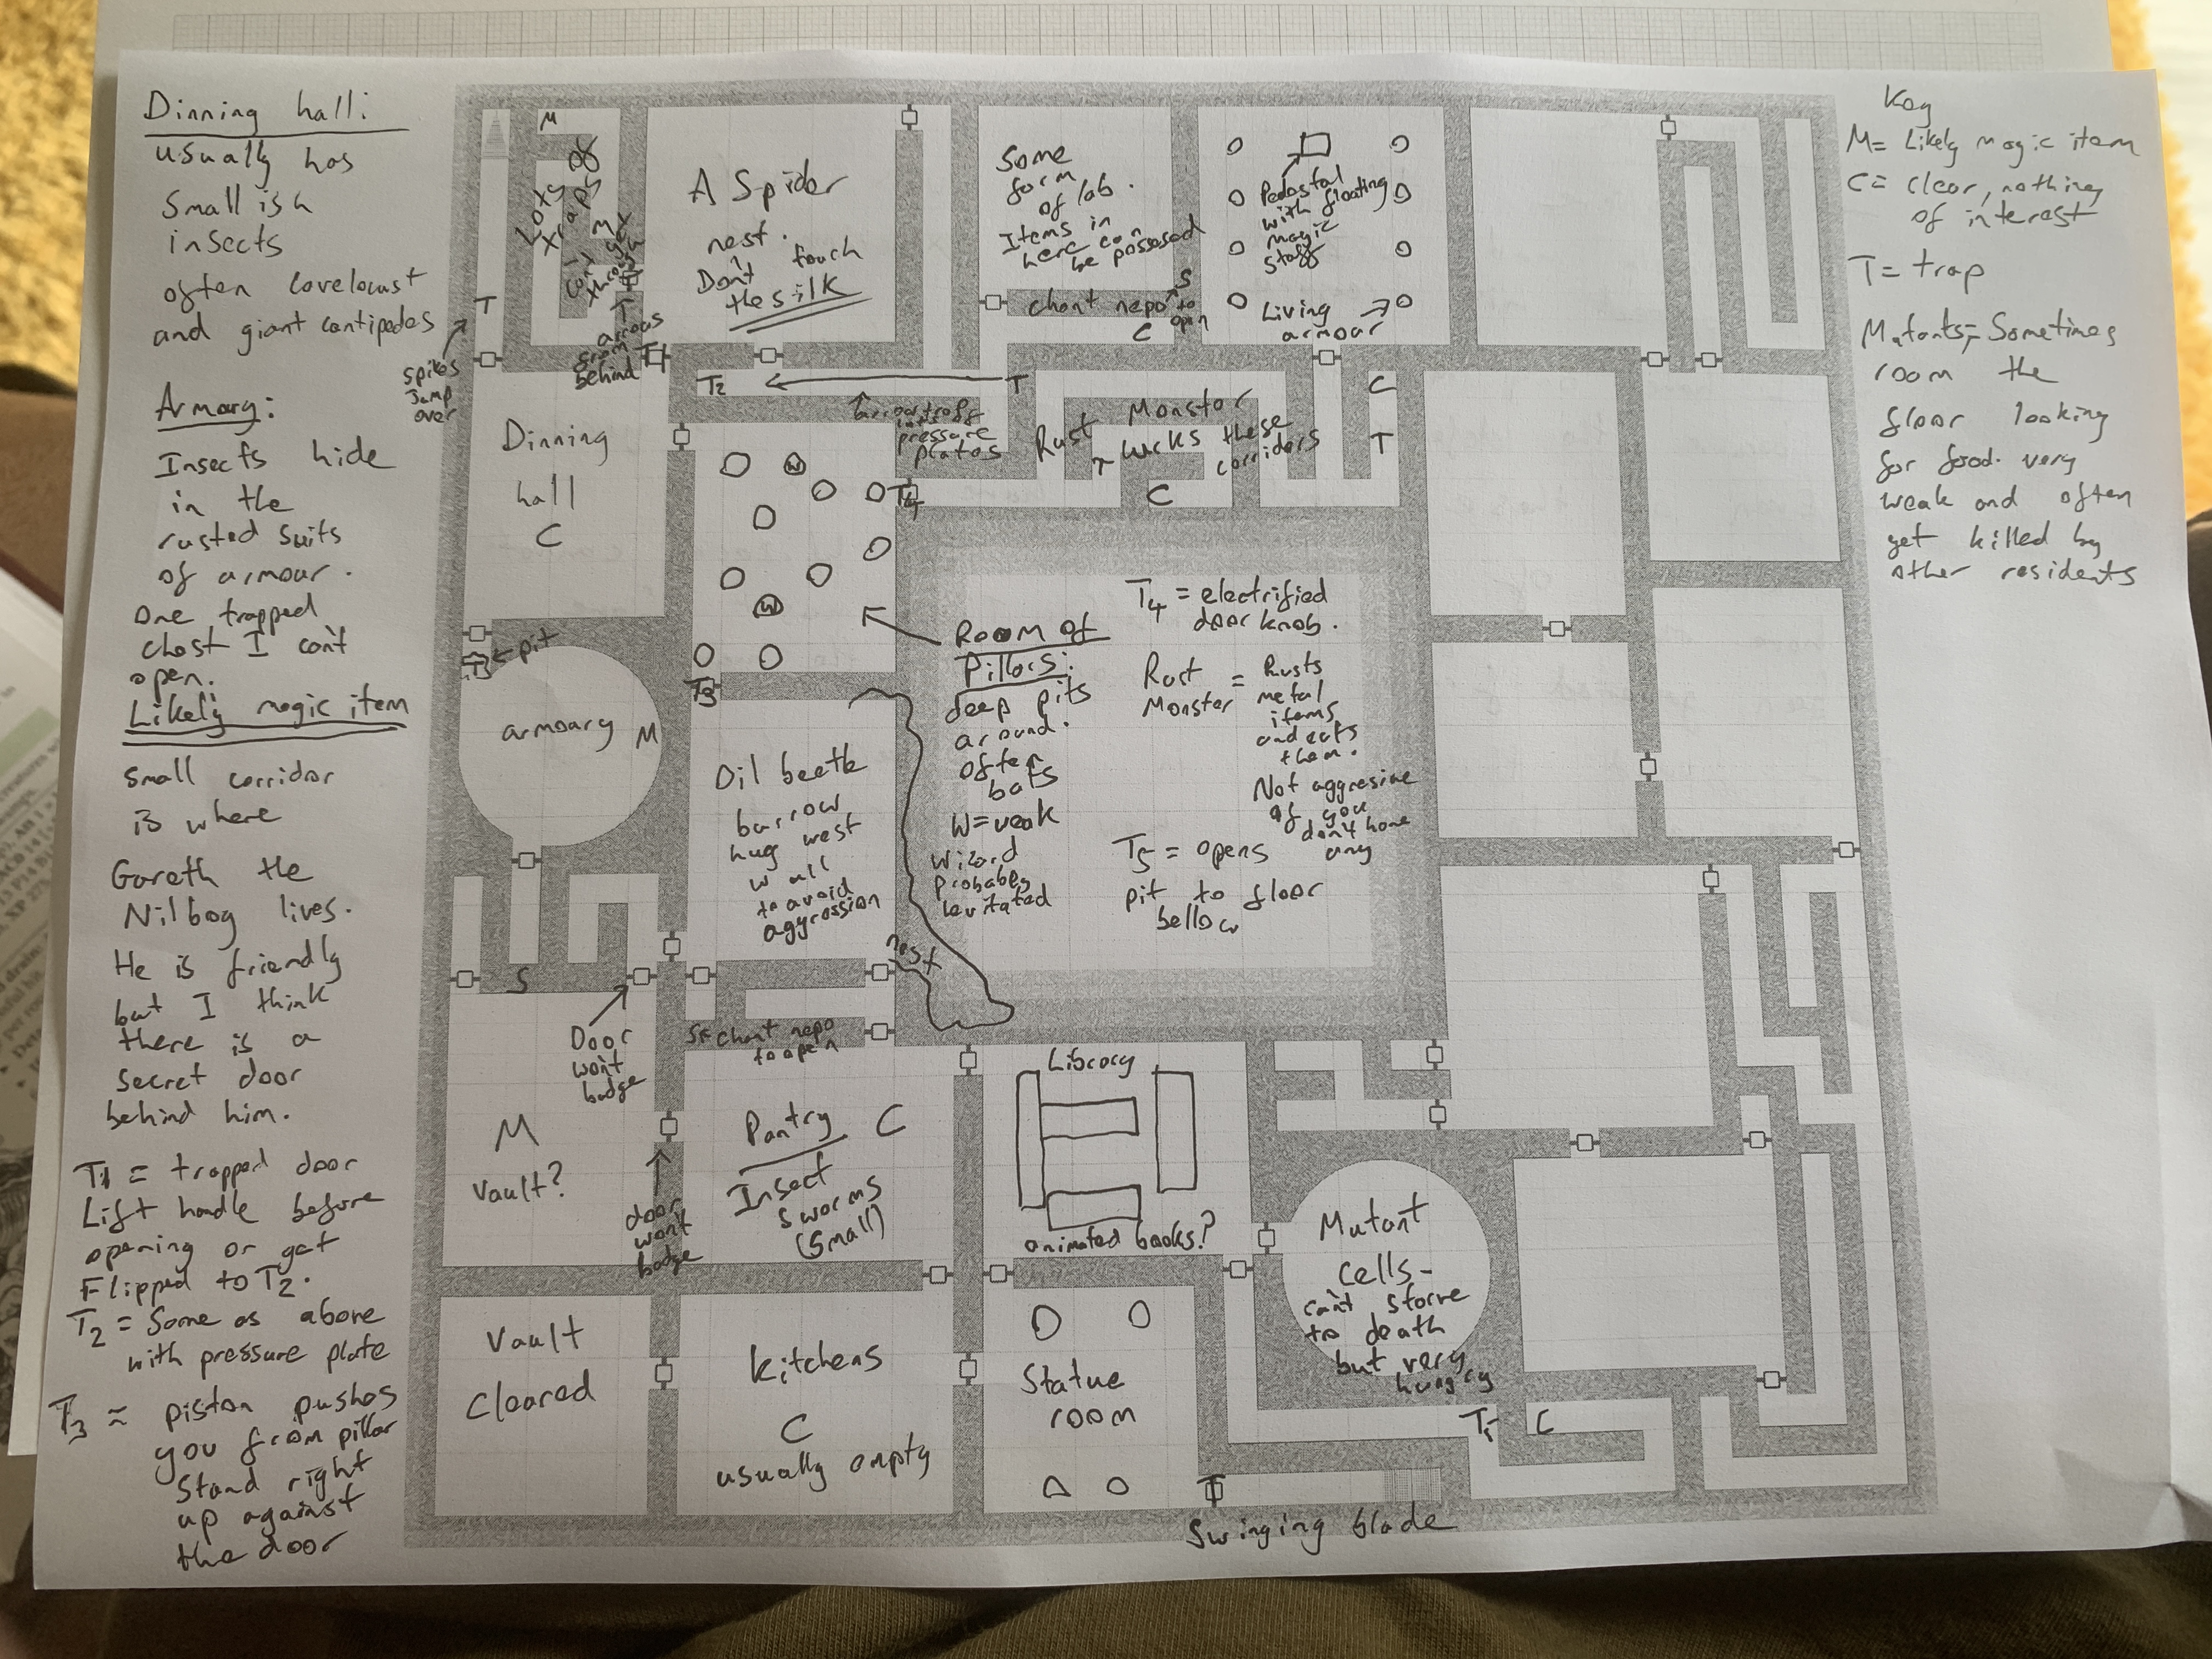 Dinning hall:
usually has
Smallish
insects
often cavelocust
and giant centipedes
Armory:
Insects hide
in the
rusted suits
of armour.
One trapped
chest I can't
open.
Likely magic item
Small corridor
is where
Gareth the
Nilbog lives.
He is friendly
but I think
there is a
secret door
behind him.
T1 = trapped door
Lift handle before
opening or get
Flipped to T2.
T2 = Same as above
with pressure plate
T3 = piston pushes
you from pillar
Stand right
up against
the door
M
Lots of
traps
M
I can't get
through
T
arrows
from
behind
T1
T
spikes
Jump
over
A Spider
nest.
Don't touch
the silk
Some
form
of lab.
Items in
here can
be possessed
S
chant repo to
open
C
Pedestal
with floating
magic
staff
Living
armour
T2
T
arrow trap
pressure
plates
Rust Monster
lurks these
corridors
C
T
C
Dinning
hall
C
W
T4
W
T3
T3
pit
armoary M
Room of
Pillars:
deep pits
around.
Often
bats
W = weak
Wizard
probabley
levitated
T4 = electrified
door knob.
Rust
Monster = Rusts
metal
items
and eats
them.
Not aggresive
if you
don't have
any
T5 = opens
pit to floor
bellow
Oil beetle
burrow
hug west
wall
to avoid
aggression
nest
S
Door
won't
budge
S chant repo
to open
M
Vault?
door
won't
budge
Pantry C
Insect
sworms
(small)
Library
animated books?
Mutant
cells-
can't starve
to death
but very
hungry
Vault
Cleared
Kitchens
C
usually empty
Statue
room
T5 C
T
Swinging blade
Key
M= Likely magic item
C= clear, nothing
of interest
T= trap
Mutants= Sometimes
room the
floor looking
for food. very
weak and often
get killed by
other residents